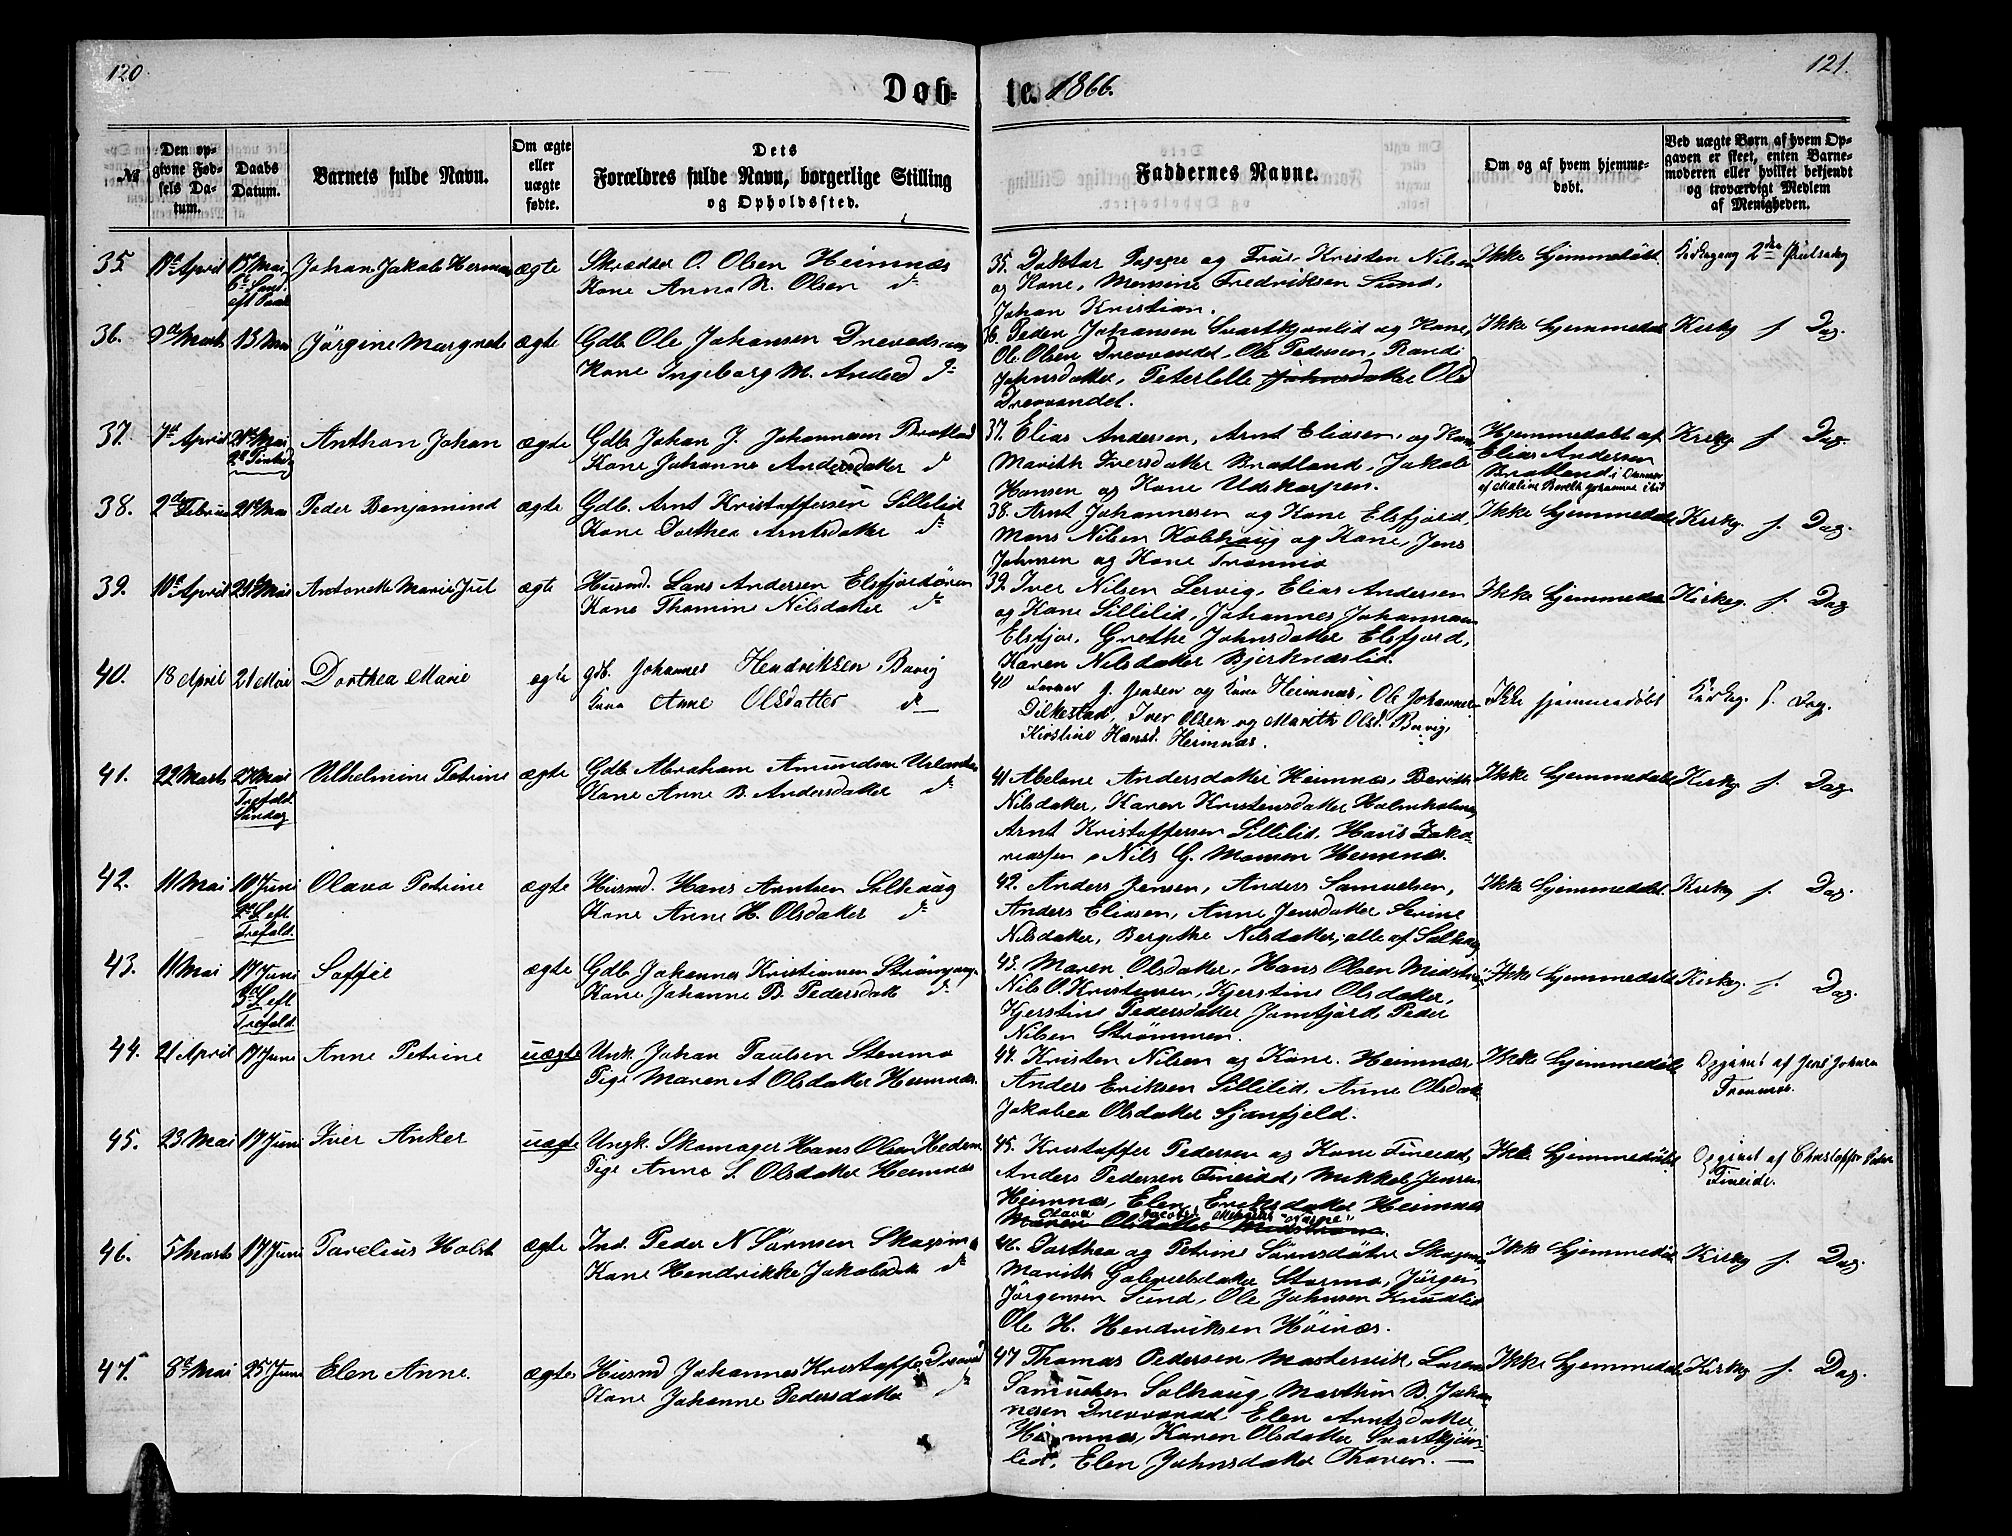 120
121.
Døb-
te. 1866.
№
Den opgivne Fødsels Datum.
Daabs Datum.
Barnets fulde Navn.
Om ægte eller uægte fødte.
Dets Forældres fulde Navn, borgerlige Stilling og Opholdssted.
Faddernes Navne.
Om og af hvem hjemmedøbt.
Ved uægte Børn af hvem Opgaven er skeet, enten Barnemoderen eller hvilket bekjendt og troværdigt Medlem af Menigheden.
35. April Mai Johan Jakob Herman ægte
Skrædder O. Olsen Hemnæs
Kone Anna N. Olsen
35. Doktor og Frue, Kristen Nilsen
og Kone, Mensine Fredriksen Sund,
Johan Kristian.
Ikke hjemmedøbt
36. Marts 13 Mai Jörgine Margrete ægte
Gdb. Ole Johansen
Kone Ingeborg M. Andersd
36. Peder Johansen og Kone,
Ole Olsen Drevvandet, Ole Pedersen, Randi
Johnsdatter, Peterlelle Johnsdatter Olsd
Drevvandet.
Ikke hjemmedøbt Kirkg f. Dag.
37. 7de April 21de Mai Anthon Johan ægte
Gdb Johan J. Johannesen Bratland
Kone Johanna Andersdatter
37. Elias Andersen, Arnt Eliasen, og Kone
Marith Iversdatter Bratland, Jakob
Hansen og Kone Utskarpen.
Hjemmedøbt af
Elias Andersen
Bratland
Kirkg f. Dag.
38. 2de Februar 21de Mai Peder Benjamind ægte
Gdb. Arnt Kristoffersen Lillelid
Kone Dorthea Arntsdatter
38. Arnt Johannesen og Kone Elsfjord,
Mons Nilsen Kolhaug og Kone, Jens
Johnsen og Kone
Ikke hjemmedøbt Kirkg. f. Dag.
39. 10de April 21de Mai Antonette Marie Jul ægte
Husmd. Lars Andersen Elsfjordören
Kone Thamine Nilsdatter
39. Iver Nilsen Lervig, Elias Andersen
og Kone Lillelid, Johannes Johannesen
Elsfjor, Grethe Johnsdatter Elsfjord,
Karen Nilsdatter Bjerknæslid.
Ikke hjemmedøbt Kirkeg. f. Dag
40. 18 April 21 Mai Dorthea Marie ægte
gdb. Johannes Hendriksen Bavig
Kone Anne Olsdatter
40 J. Jensen og Kone Hemnæs, Ole Johannes
Dilkestad, Iver Olsen og Marith Olsd. Bavig,
Kirstine Hansd. Hemnæs.
Ikke hjemmedøbt Kirkg. f. Dag.
41. 22 Marts 27 Mai Trefold. Søndag Vilhelmine Petrine ægte
Gdb Abraham Amundsen
Kone Anne B. Andersdatter
41 Abelone Andersdatter Hemnæs, Berith
Nilsdatter, Karen Kristensdatter Holmholmen,
Arnt Kristoffersen Lillelid, Hans Zaka-
riassen, Nils G. Monsen Hemnæs.
Ikke hjemmedøbt Kirkg. f. Dag.
42. 11 Mai 10 Juni 2de S. eft. Trefold. Olava Petrine ægte
Husmd. Hans Arntsen Solhaug
Kone Anne H. Olsdatter
42. Anders Jensen, Anders Samuelsen,
Anders Eliasen, Anne Jensdatter Serine
Nilsdatter, Bergithe Nilsdatter, alle af Solhaug
Ikke hjemmedøbt Kirkg f. Dag.
43. 11 Mai 17 Juni 3die S. eft. Trefold. Saffie ægte
Gdb Johannes Kristiansen
Kone Johanne B. Pedersdatter
43. Maren Olsdatter, Hans Olsen
Nils O. Kristensen, Kjerstine Olsdatter,
Kjerstine Pedersdatter Jamtjord Peder
Nilsen Strømmen.
Ikke hjemmedøbt Kirkeg. f. Dag.
44. 21 April 17 Juni Anne Petrine uægte
Unk. Johan Paulsen Stenmo
Pige Maren A Olsdatter Hemnæs.
44. Kristen Nilsen og Kone. Hemnæs
Anders Eriksen Lillelid, Anne Olsdatter
Jakobea Olsdatter
Ikke hjemmedøbt
Opgivet af Jens Johnsen
45. 23 Mai 17 Juni Iver Anker uægte
Ungk. Skomager Hans Olsen
Pige Anne S. Olsdatter Hemnæs
45. Kristoffer Pedersen og Kone Fineid,
Anders Pedersen Fineid, Mikkel Jensen
Hemnæs, Elen Eriksdatter Hemnæs
Maren Olsdatter
Ikke hjemmedøbt
Opgivet af Christoffer Peder
Fineide.
46. 5 Marts 17 Juni Parelius Holst ægte
Ind. Peder N Sørensen
Kone Hendrikke Jakobsdtr
46. Dorthea og Petrine
Marith Gabrielsdatter Stormo, Jörgen
Jörgensen Sund, Ole Johnsen
Ole H. Hendriksen Höinæs.
Ikke hjemmedøbt Kirkeg f. Dag.
47. 8de Mai 25 Juni Elen Anne. ægte
Husmd Johannes Kristoffe
Kone Johanne Pedersdatter
47 Thomas Pedersen
Samuelsen Solhaug, Marthin B. Johan-
nesen Drevvannd, Elen Arntsdatter
Hemnæs, Karen Olsdatter
lid, Elen Johnsdatter
Ikke hjemmedøbt Kirkg f. Dag.